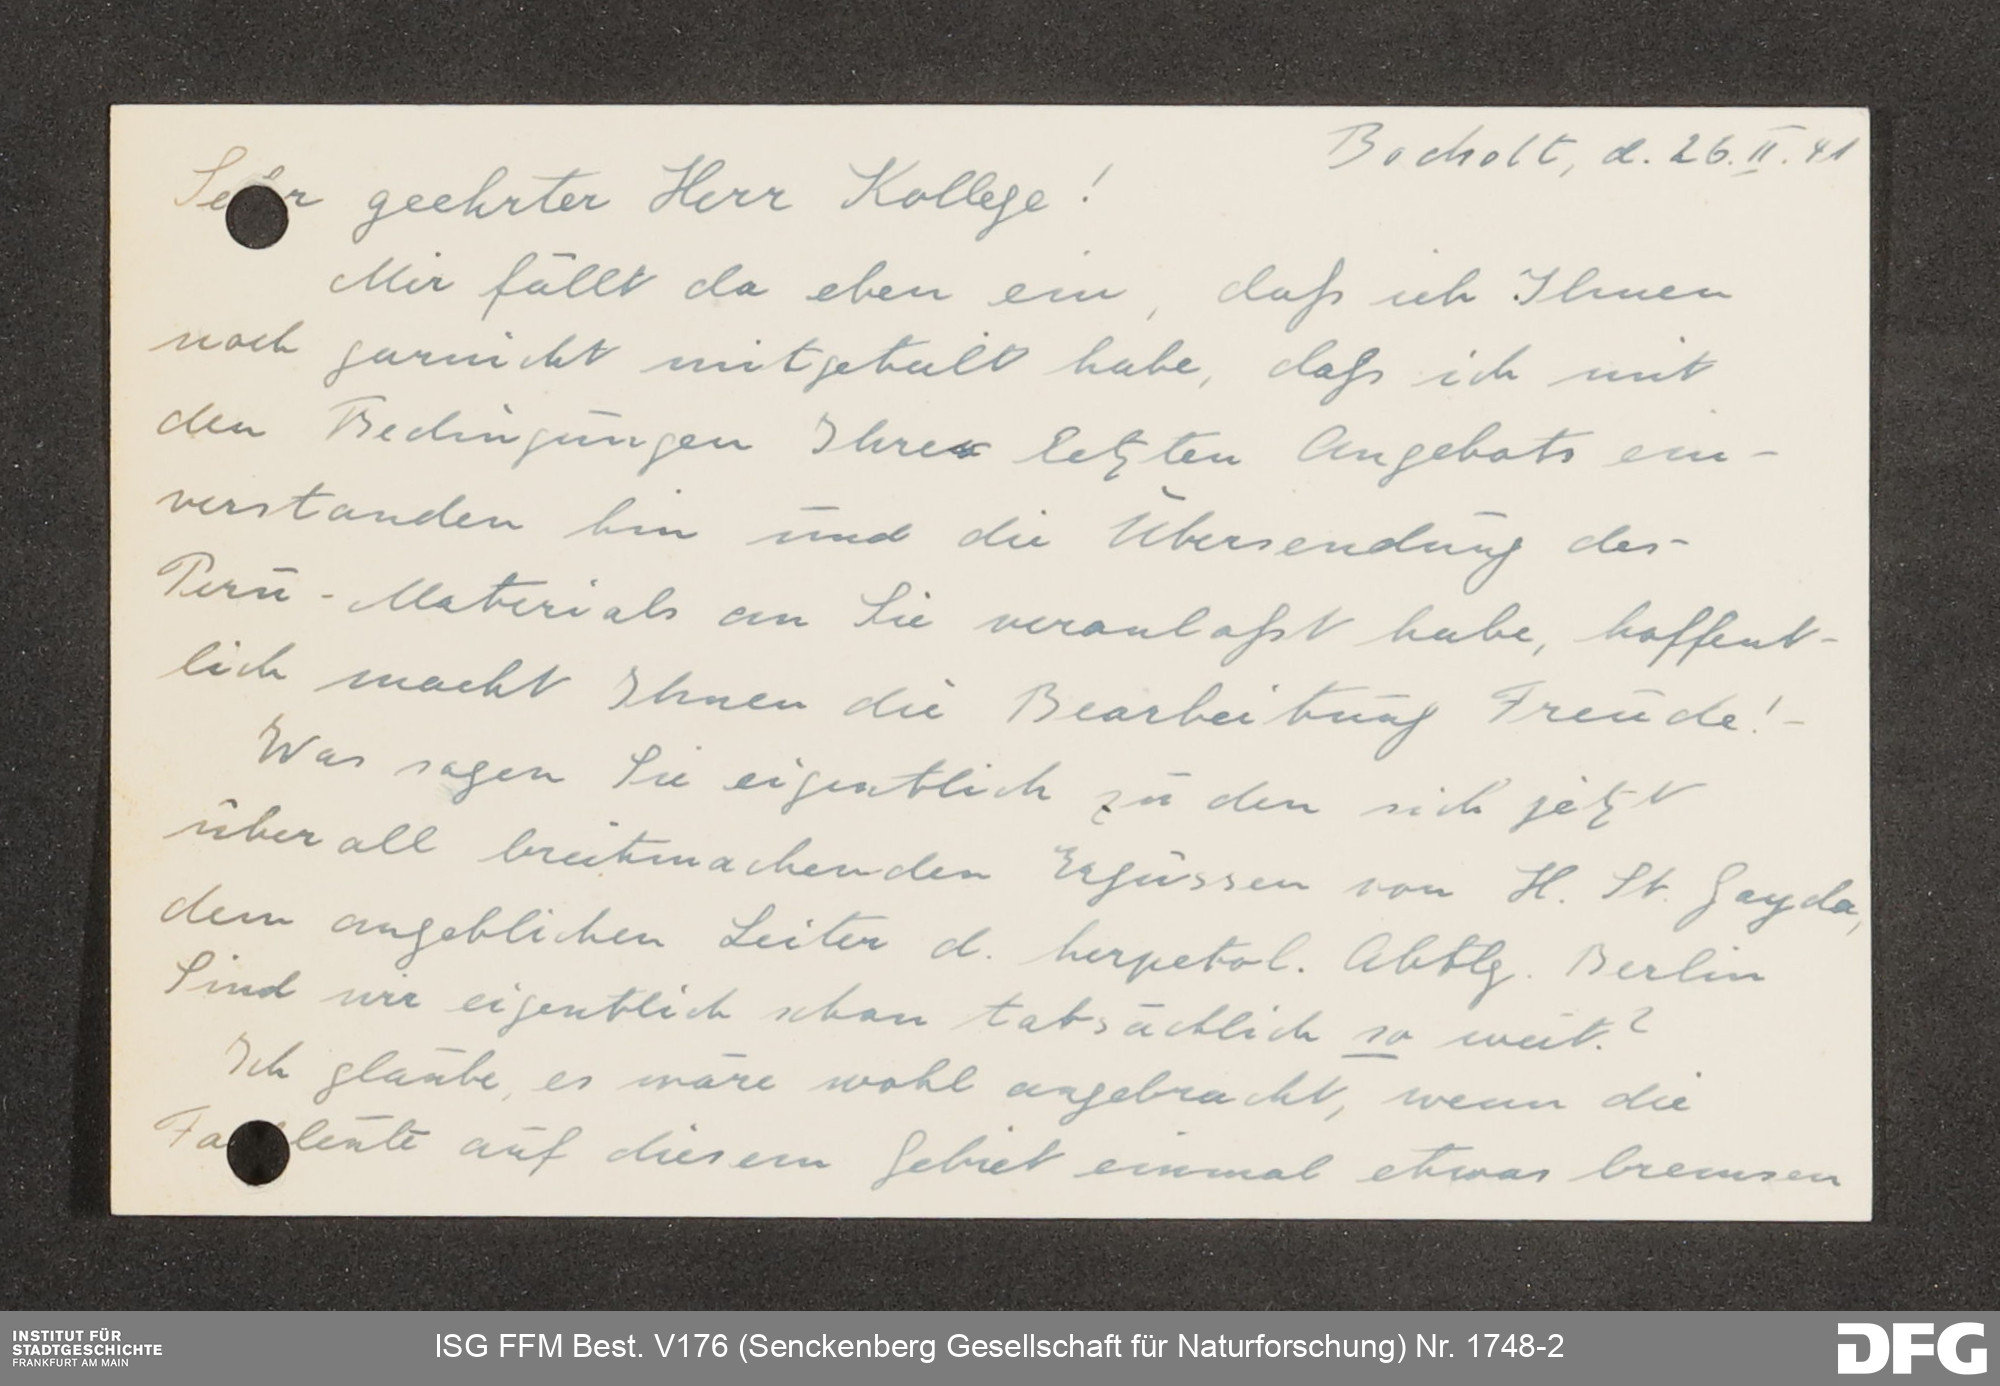 Bocholt, d. 26.II.41
Sehr geehrter Herr Kollege!
Mir fällt da eben ein, daß ich Ihnen
noch garnicht mitgeteilt habe, daß ich mit
den Bedingungen Ihres letzten Angebots ein-
verstanden bin und die Übersendung des
Peru-Materials an Sie veranlaßt habe, hoffent-
lich macht Ihnen die Bearbeitung Freude! -
Was sagen Sie eigentlich zu den sich jetzt
überall breitmachenden Ergüssen von H. St. Gayda,
dem angeblichen Leiter d. herpetol. Abtlg. Berlin
Sind wir eigentlich schon tatsächlich so weit?
Ich glaube, es wäre wohl angebracht, wenn die
Fachleute auf diesem Gebiet einmal etwas bremsen
INSTITUT FÜR
STADTGESCHICHTE
FRANKFURT AM MAIN
ISG FFM Best. V176 (Senckenberg Gesellschaft für Naturforschung) Nr. 1748-2
DFG